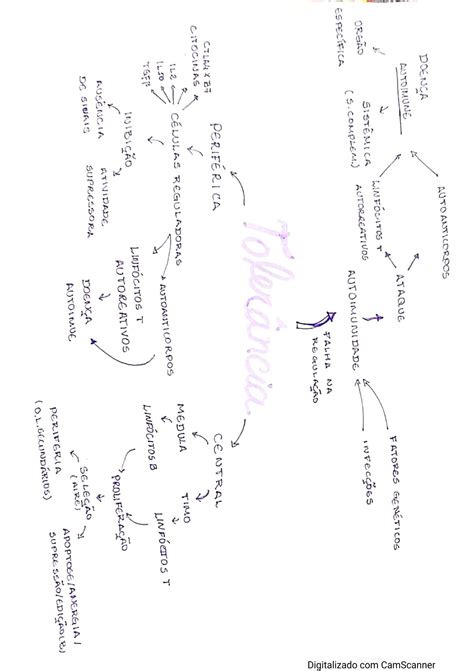 Tolerância
PERIFÉRICA
CÉLULAS REGULADORAS
CTLA4 X B7
CITOCINAS
IL2
IL10
TGFβ
INIBIÇÃO
AUSÊNCIA
DE SINAIS
ATIVIDADE
SUPRESSORA
AUTOANTICORPOS
LINFÓCITOS T
AUTOREATIVOS
DOENÇA
AUTOIMUE
CENTRAL
MEDULA
LINFÓCITOS B
TIMO
LINFÓCITOS T
PROLIFERAÇÃO
SELEÇÃO
(AIRE)
PERIFERIA
(O.L.SECUNDÁRIOS)
APOPTOSE/ANERGIA/
SUPRESSÃO/EDIÇÃO(LB)
FALHA NA
REGULAÇÃO
AUTOIMUNIDADE
FATORES GENÉTICOS
INFECÇÕES
ATAQUE
AUTOANTICORPOS
LINFÓCITOS T
AUTORREATIVOS
DOENÇA
AUTOIMUNE
ORGÃO
ESPECÍFICA
SISTÊMICA
(S. COMPLEM.)
Digitalizado com CamScanner